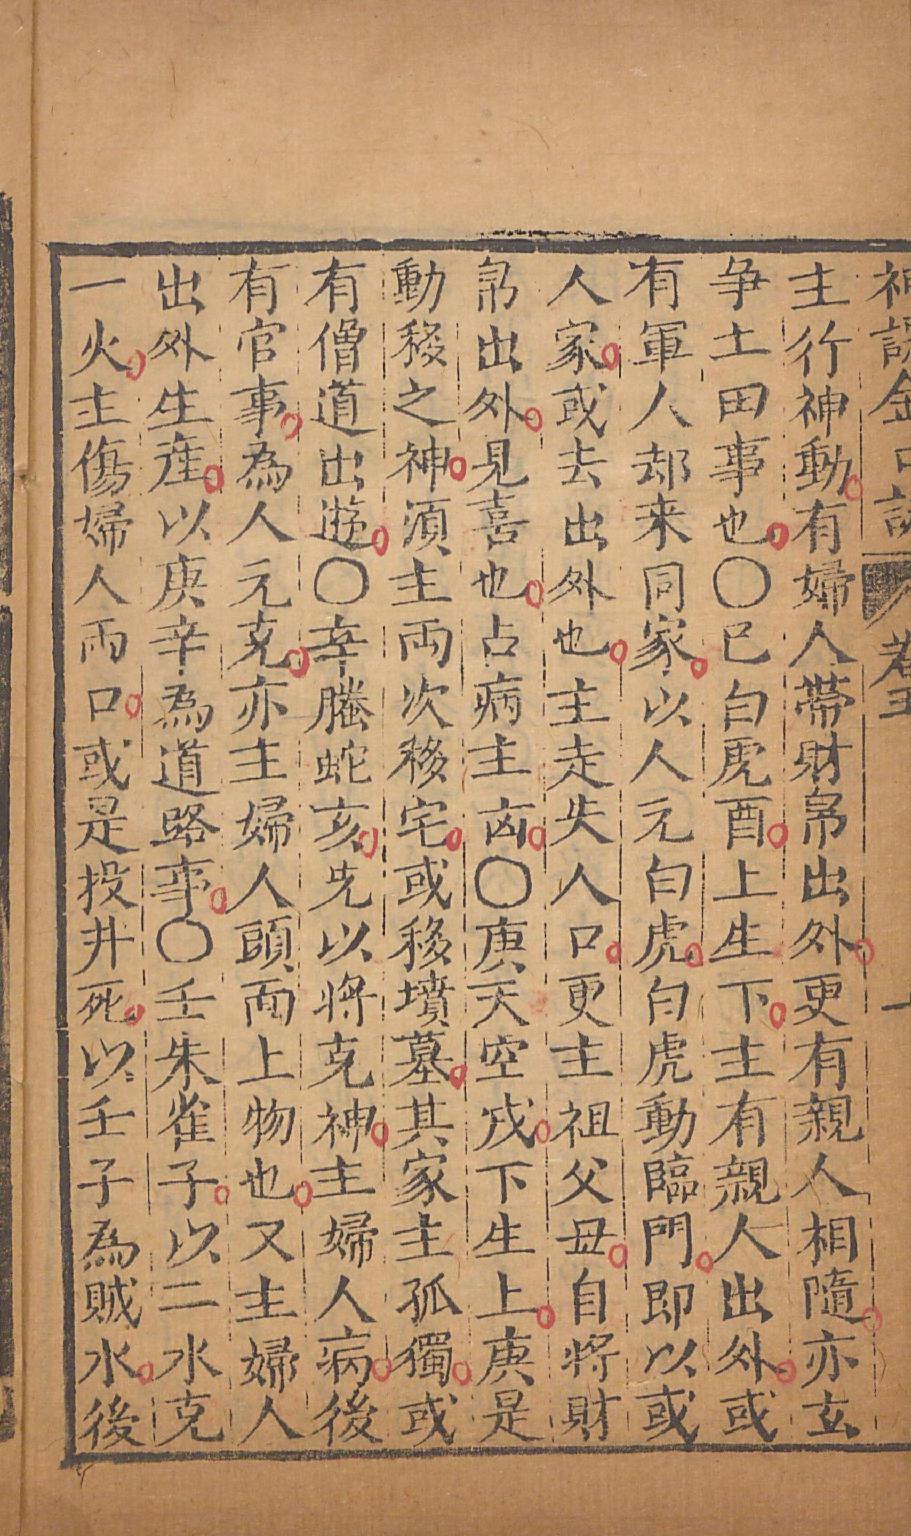 神課金口訣 卷五 一
主行神動有婦人帶財帛出外更有親人相隨亦玄
爭土田事也〇已白虎酉上生下主有親人出外或
有軍人却来同家以人元白虎白虎動臨門即以或
人家或去出外也主走失人口更主祖父母自將財
帛出外見喜也占病主凶〇庚天空戌下生上庚是
動移之神須主兩次移宅或移墳墓其家主孤獨或
有僧道出遊〇辛螣蛇亥先以將克神主婦人病後
有官事為人元克亦主婦人頭面上物也又主婦人
出外生産以庚辛為道路事〇壬朱雀子以二水克
一火主傷婦人兩口或是投井死以壬子為賊水後